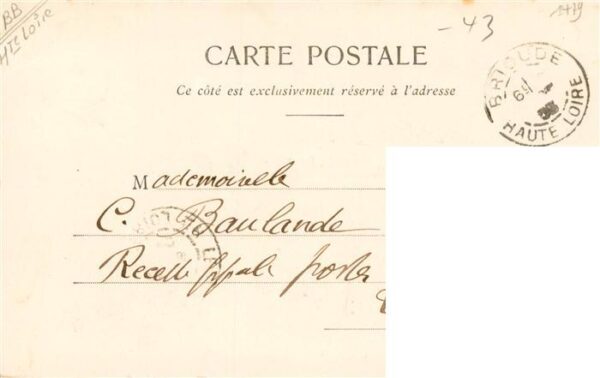 BB
Hte Loire
-43
1419
CARTE POSTALE
Ce côté est exclusivement réservé à l'adresse
BRIOUDE
HAUTE LOIRE
Mademoiselle
C. Baulande
Recette ppale postes